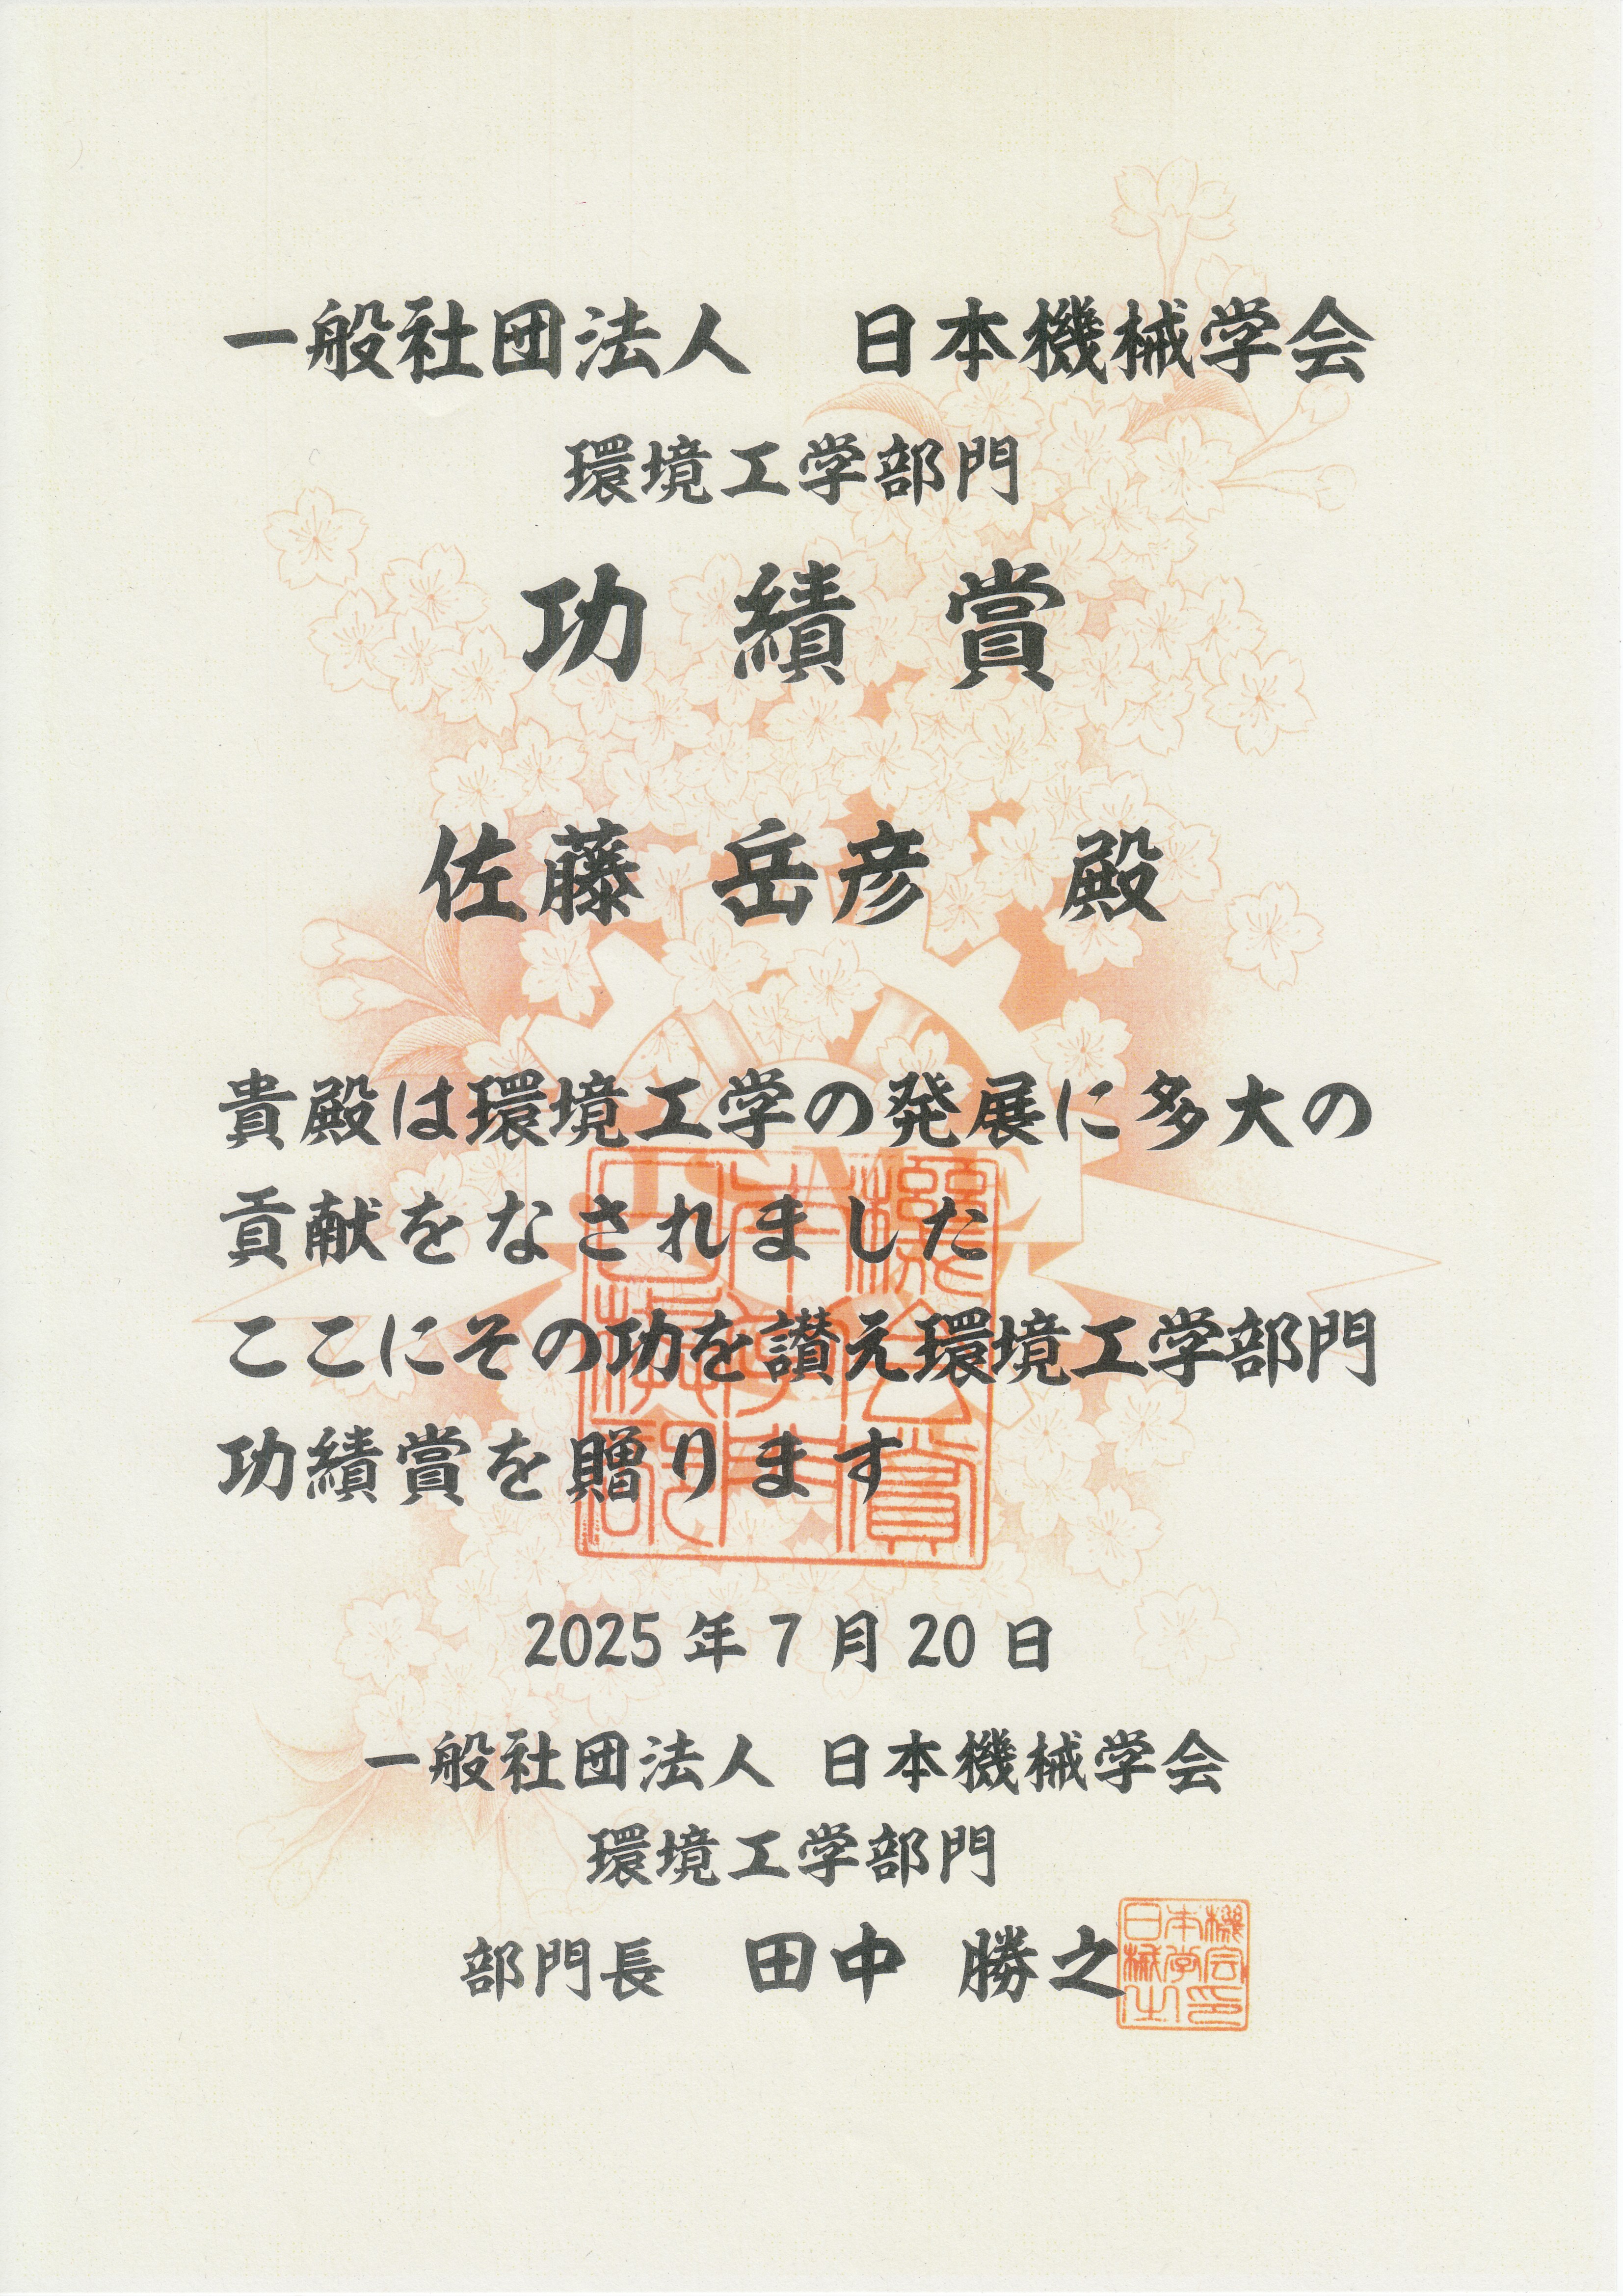 一般社団法人　日本機械学会
環境工学部門
功 績 賞
佐藤 岳彦　殿
貴殿は環境工学の発展に多大の
貢献をなされました
ここにその功を讃え環境工学部門
功績賞を贈ります
2025 年 7 月 20 日
一般社団法人 日本機械学会
環境工学部門
部門長　田中 勝之
日本機
械学会
之印
JSME